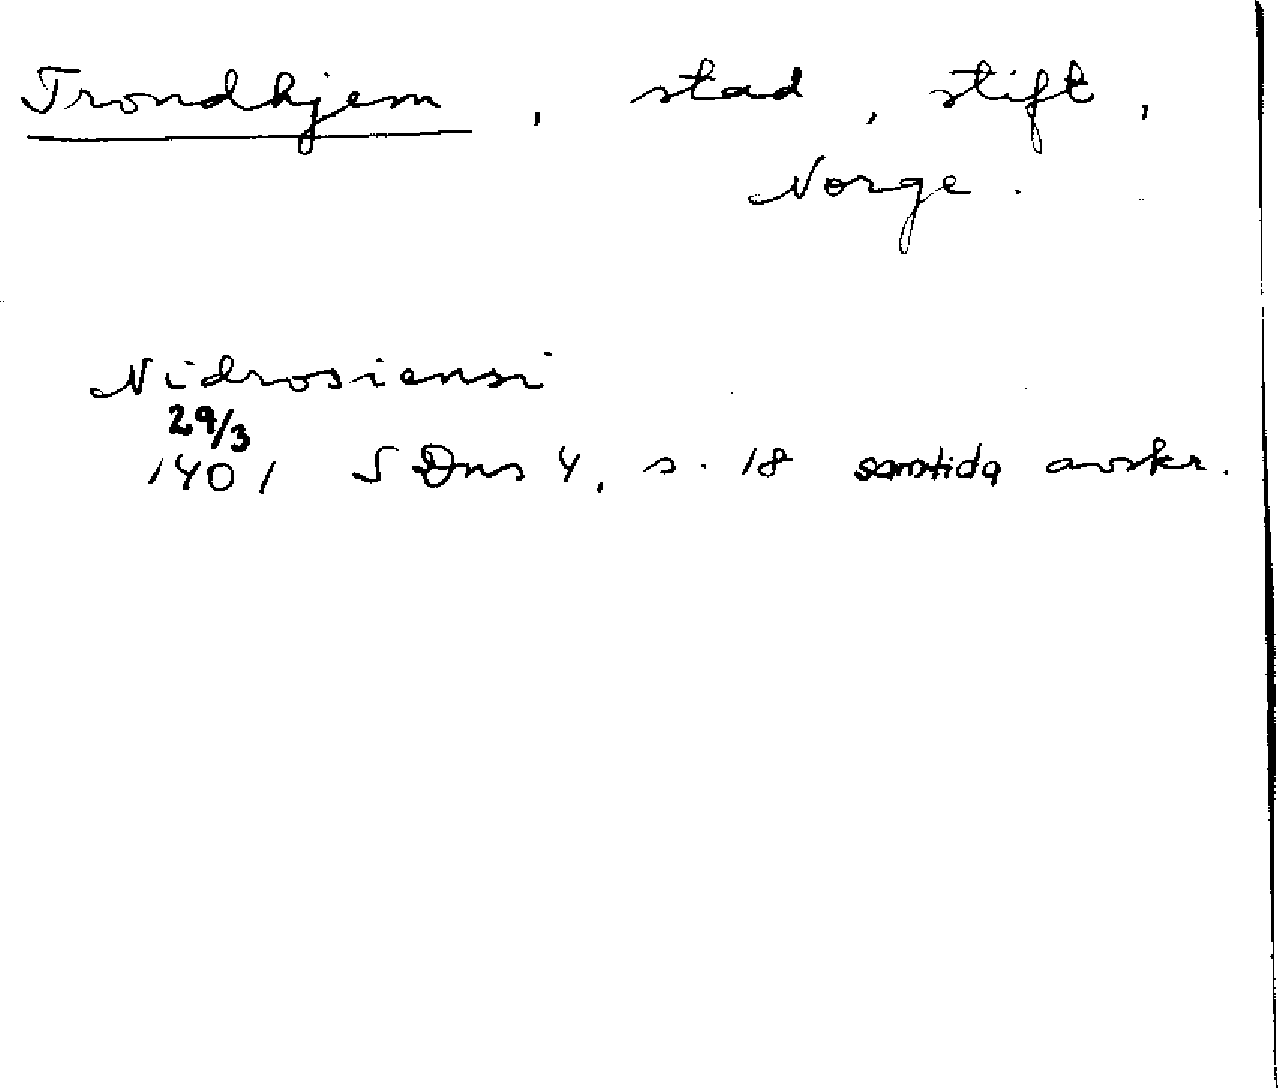 Trondhjem, stad, stift,
Norge.
Nidrosiensi
29/3
1401 SDns 4, s. 18 samtida avskr.